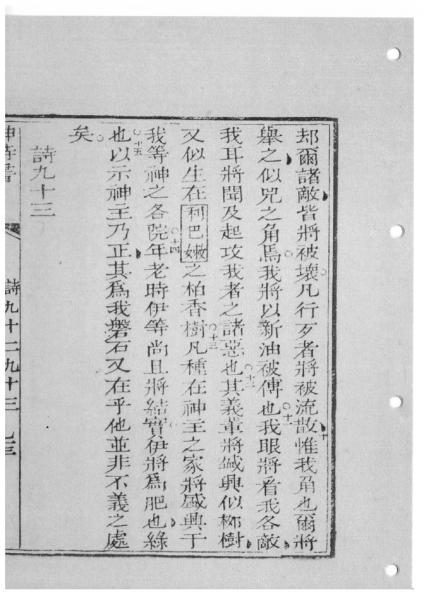 却爾諸敵皆將被壞凡行歹者將被流散惟我角也爾將
舉之似兕之角焉我將以新油被傅也我眼將看我各敵
我耳將聞及起攻我者之諸惡也其義輩將盛興似椰樹
又似生在利巴嫩之柏香樹凡種在神主之家將盛興于
我等神之各院年老時伊等尚且將結實伊將為肥也綠
也以示神主乃正其為我磐石又在乎他並非不義之處
矣
詩九十三
神詩書
詩九十二九十三